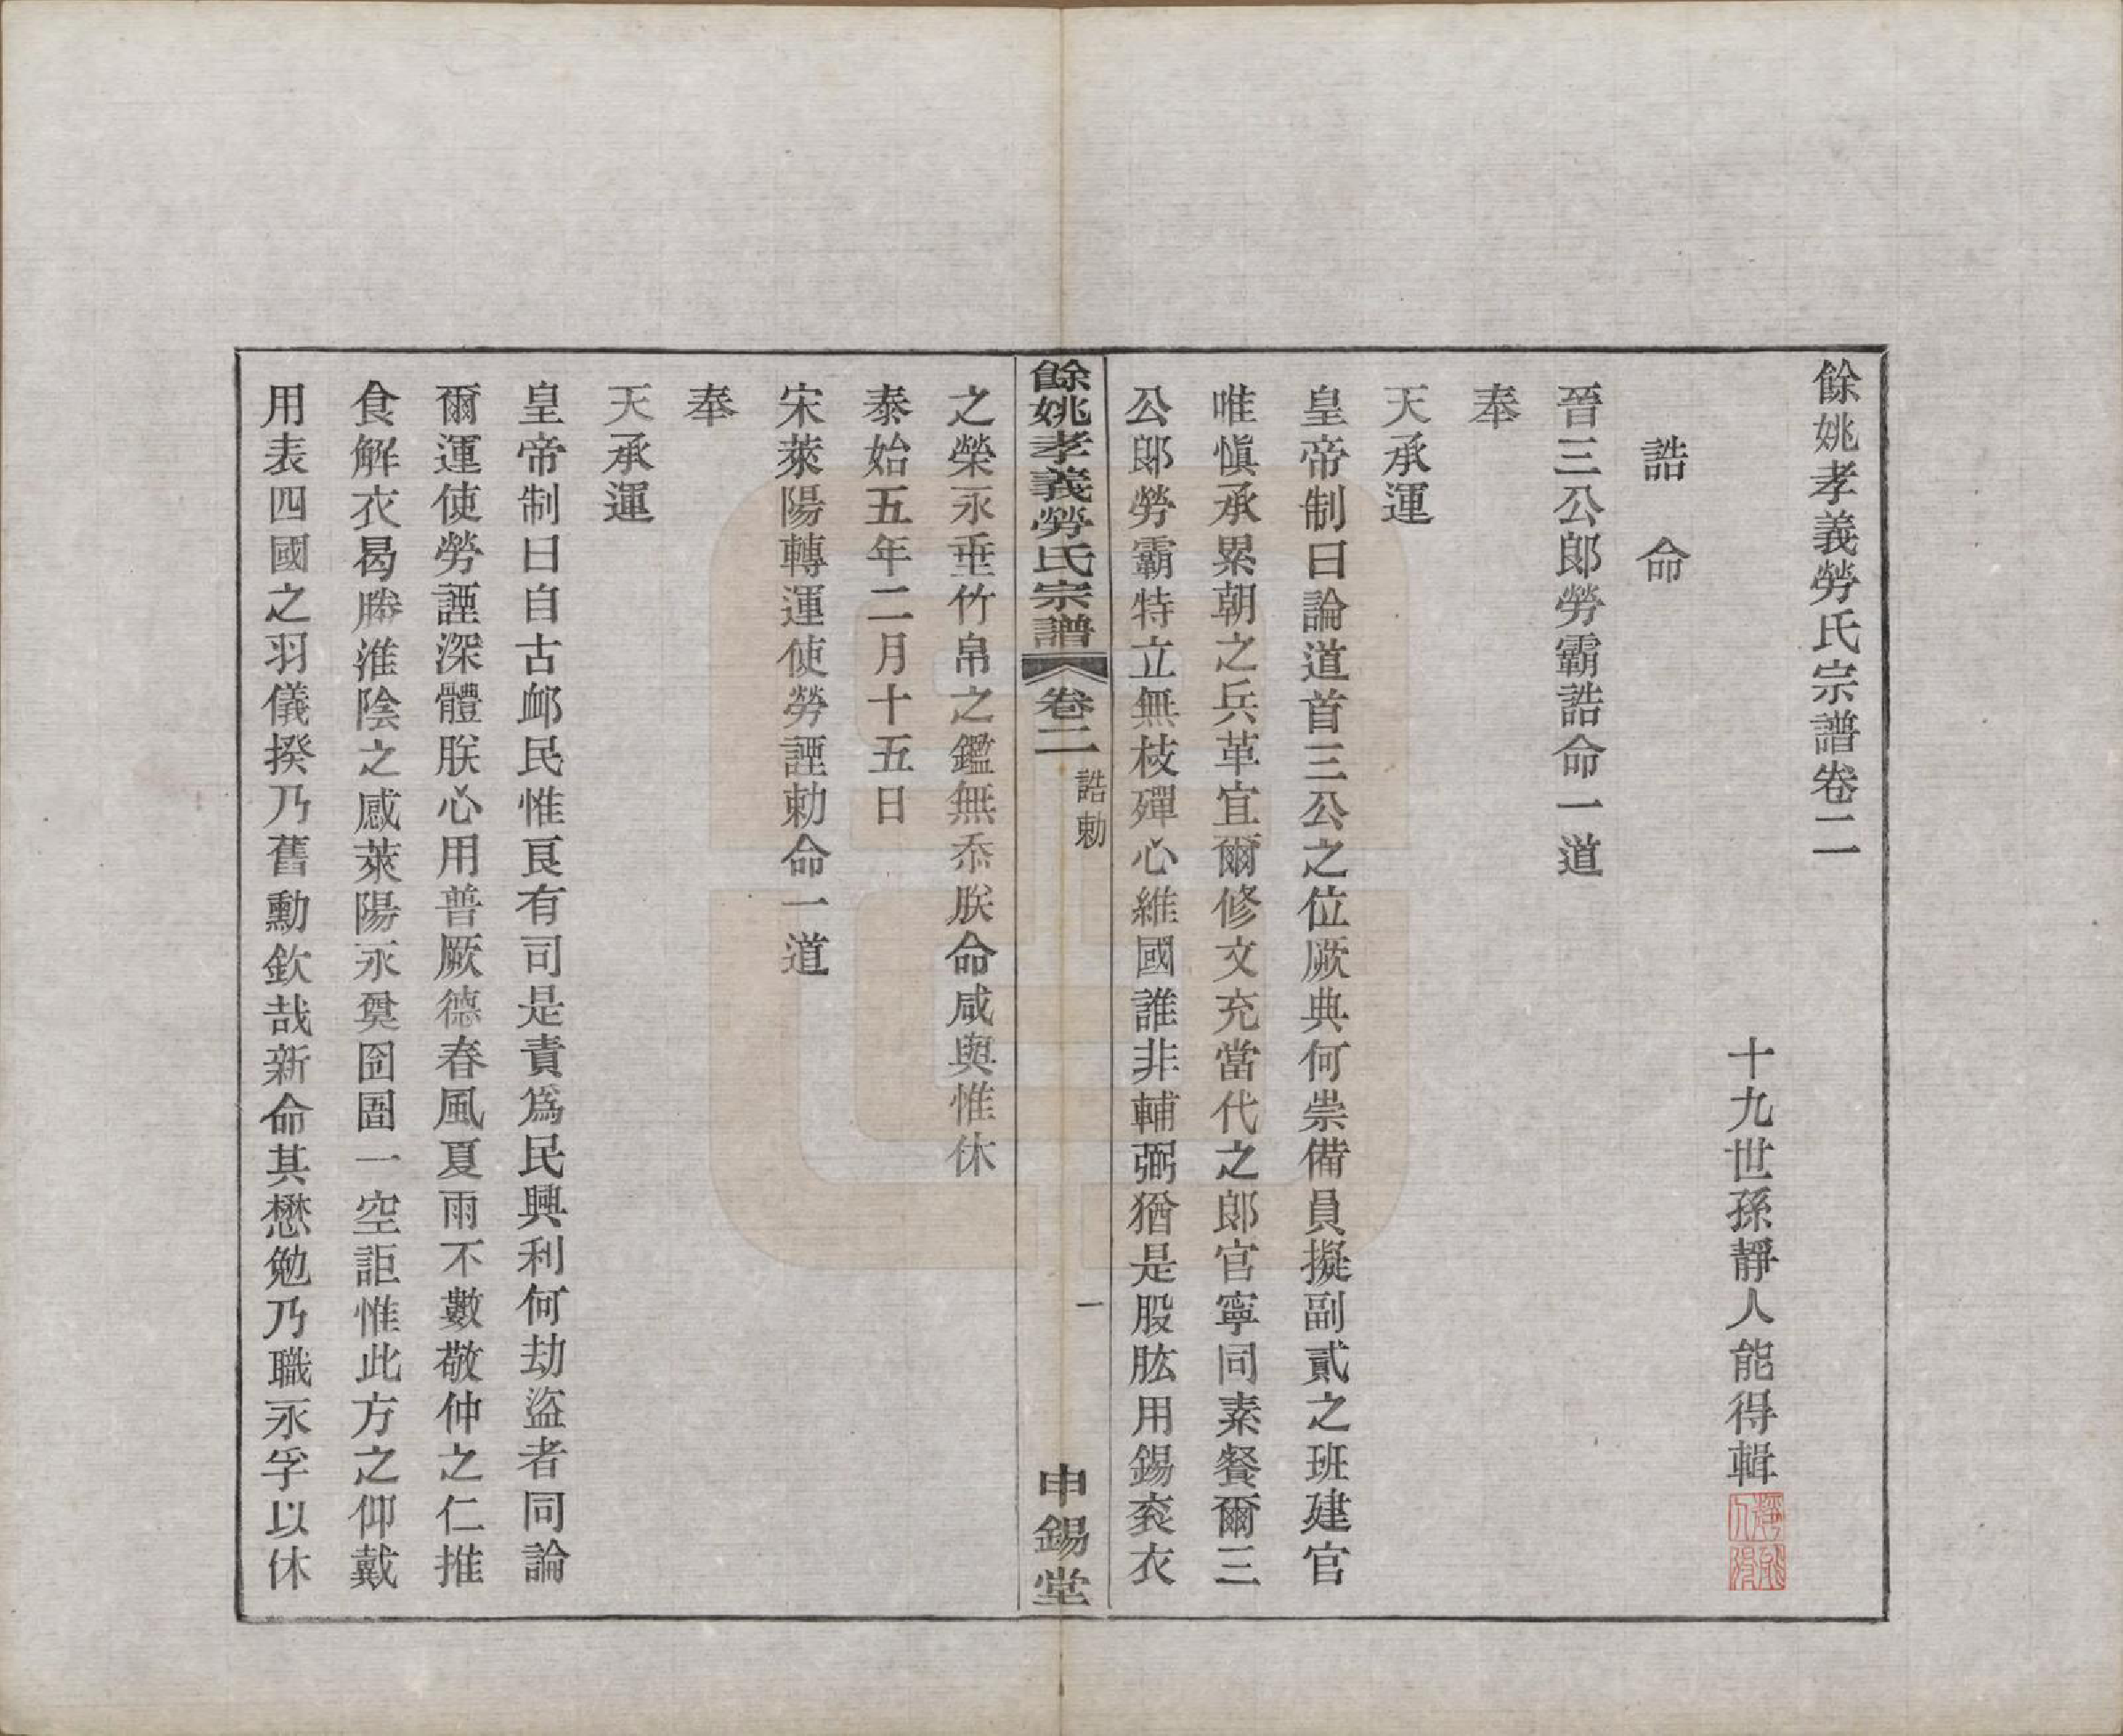 餘姚孝義勞氏宗譜卷二
十九世孫靜人能得輯
誥命
晉三公郎勞霸誥命一道
奉
天承運
皇帝制曰論道首三公之位厥典何崇備員擬副貳之班建官
唯愼承累朝之兵革宜爾修文充當代之郎官寧同素餐爾三
公郎勞霸特立無枝殫心維國誰非輔弼猶是股肱用錫袞衣
餘姚孝義勞氏宗譜
卷二
誥勅
一
申錫堂
之榮永垂竹帛之鑑無忝朕命咸與惟休
泰始五年二月十五日
宋萊陽轉運使勞諲勅命一道
奉
天承運
皇帝制曰自古邮民惟艮有司是責爲民興利何劫盜者同論
爾運使勞諲深體朕心用普厥德春風夏雨不數敬仲之仁推
食解衣曷勝淮陰之感萊陽永奠囹圄一空詎惟此方之仰戴
用表四國之羽儀揆乃舊勳欽哉新命其懋勉乃職永孚以休